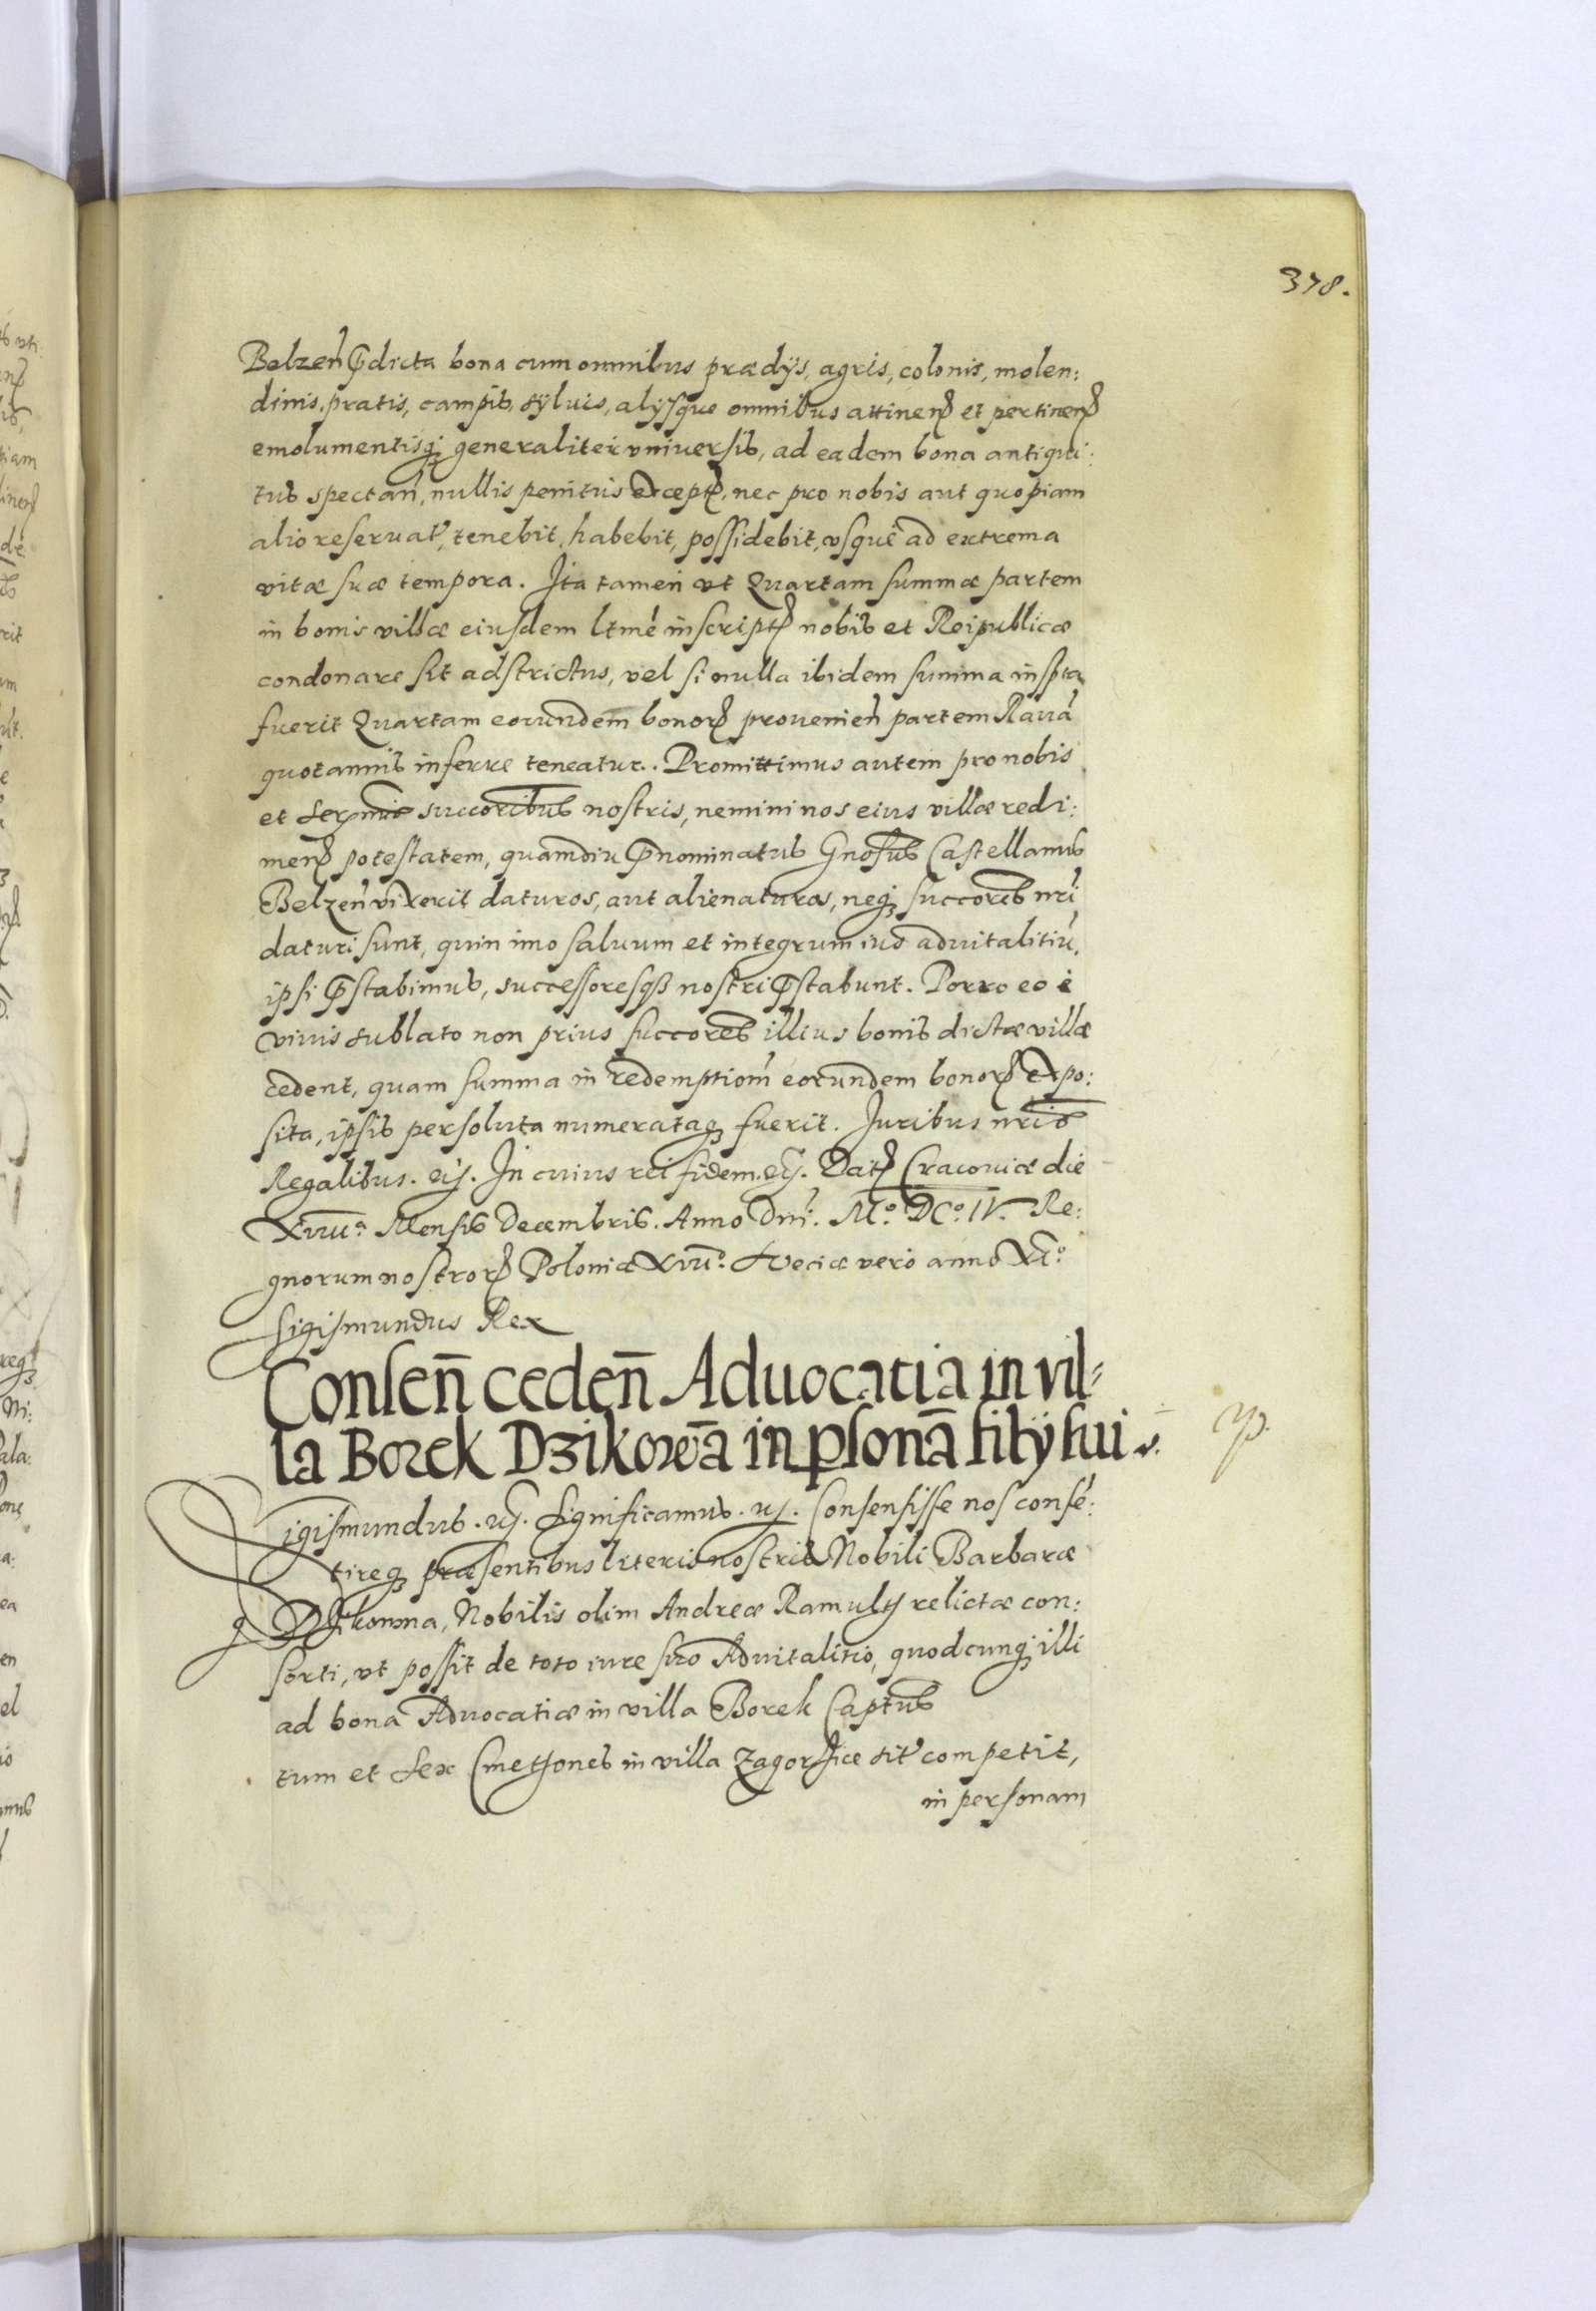 378.
Belzeń pdicta bona cum omnibus prædÿs, agris, colonis, molen:
dinis, pratis, campis, sÿluis, alÿsque omnibus attinen et pertinen
emolumentisq; generaliter vniuersis, ad eadem bona antiqui:
tus spectań, nullis penitus except, nec pro nobis aut quopiam
alio reseruat, tenebit, habebit, possidebit, vsque ad extrema
vitæ suæ tempora. Ita tamen vt Quartam summæ partem
in bonis villæ eiusdem ltmé inscript nobis et Reipublicæ
condonare sit adstrictus, vel si nulla ibidem summa inspta
fuerit Quartam eorundem bonor prouenień partem Rauá
quotannis inferre teneatur. Promittimus autem pro nobis
et Sermis succoribus nostris, nemini nos eius villæ redi:
men potestatem, quamdiu pnominatus Gnosus Castellanus
Belzeń vixerit daturos, aut alienaturos, neq; succores nri
daturi sunt, quin imo saluum et integrum ius aduitalitiu,
ipsi pstabimus, successoresq; nostri pstabunt. Porro eo è
viuis sublato non prius succores illius bonis dictæ villæ
cedent, quam summa in redemptiom eorundem bonor expo:
sita, ipsis persoluta numerataq; fuerit. Juribus nris
Regalibus. etc. In cuius rei fidem. etc. Dat Cracouiæ die
Mensis Decembris. Anno Dni. Mº. DCº. IV. Re:
gnorum nostror Poloniæ Sueciæ vero anno XIº.
Sigismundus Rex
Consen̄ ceden̄ Aduocatia in vil=
la Borek Dzikow̄a in psonā filÿ sui.
Sigismundus. etc. Significamus. etc. Consensisse nos consé:
tireq; præsentibus literis nostris Nobili Barbaræ
Dzikowna, Nobilis olim Andreæ Ramultÿ relictæ con:
sorti, vt possit de toto iure suo Aduitalitio, quodcunq; illi
ad bona Aduocatiæ in villa Borek Captus
tum et Sex Cmetones in villa Zagorzice sit competit,
in personam